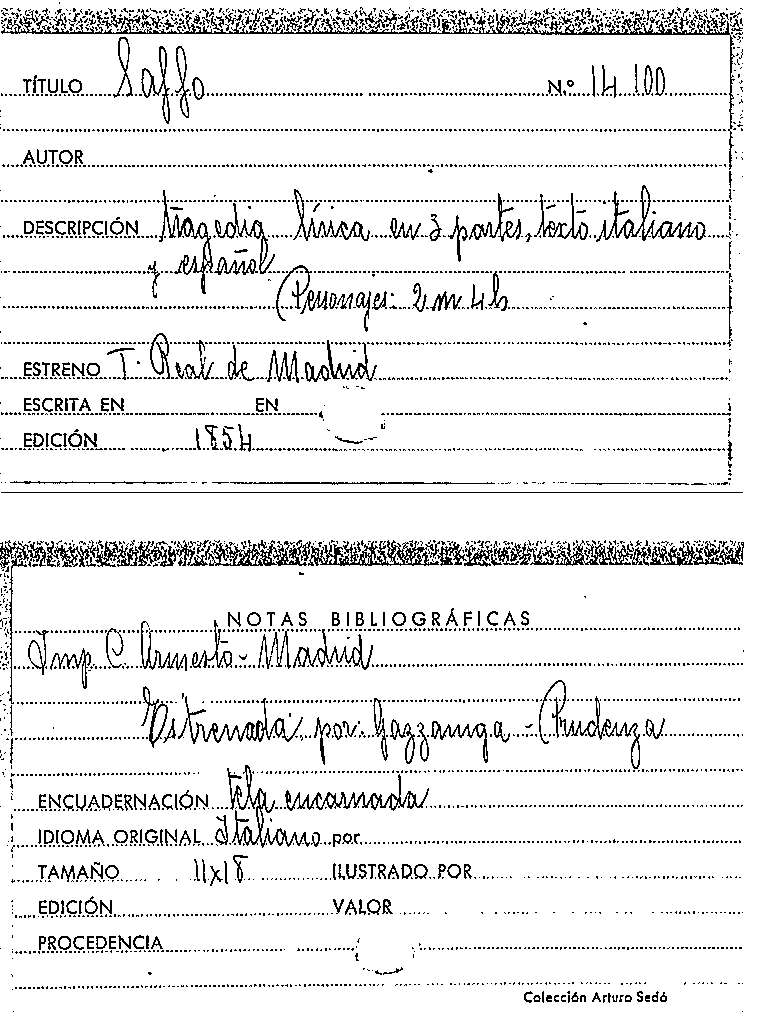 TÍTULO Saffo N.º 14100
AUTOR
DESCRIPCIÓN tragedia lírica en 3 partes, texto italiano
y español
(Personajes: 2 m 4 h
ESTRENO T. Real de Madrid
ESCRITA EN EN
EDICIÓN 1854
NOTAS BIBLIOGRÁFICAS
Imp C. Armesto - Madrid
Estrenada por: Gazzaniga - Prudenza
ENCUADERNACIÓN tela encarnada
IDIOMA ORIGINAL Italiano por
TAMAÑO 11x18 ILUSTRADO POR
EDICIÓN VALOR
PROCEDENCIA
Colección Arturo Sedó